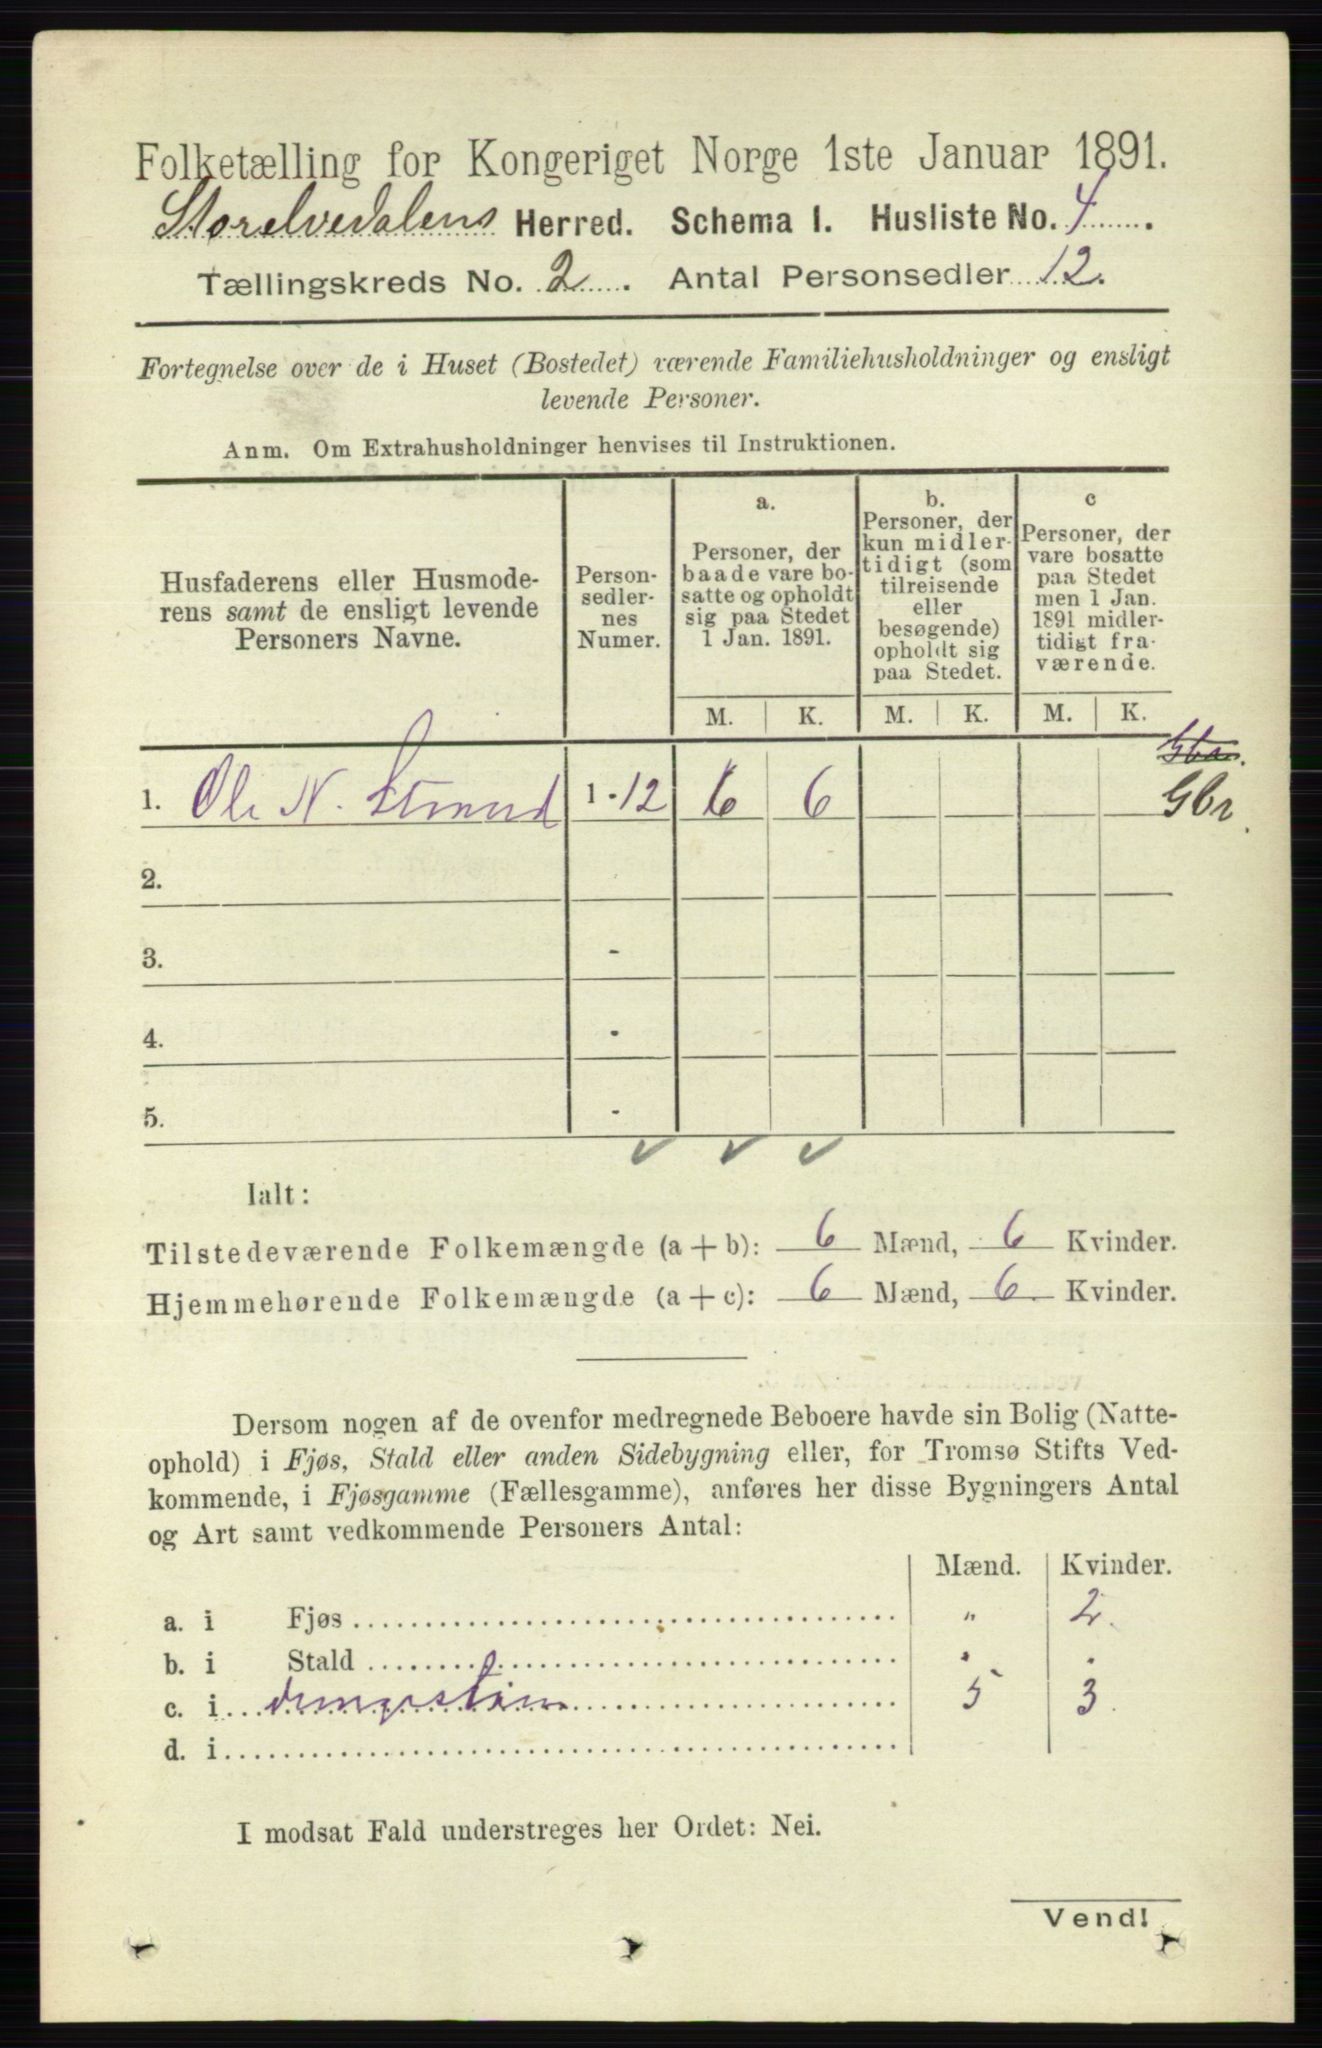 Folketælling for Kongeriget Norge 1ste Januar 1891.
Storelvedalens Herred. Schema I. Husliste No. 4
Tællingskreds No. 2. Antal Personsedler 12.
Fortegnelse over de i Huset (Bostedet) værende Familiehusholdninger og ensligt
levende Personer.
Anm. Om Extrahusholdninger henvises til Instruktionen.
Husfaderens eller Husmode-
rens samt de ensligt levende
Personers Navne.
Person-
sedler-
nes
Numer.
a.
Personer, der
baade vare bo-
satte og opholdt
sig paa Stedet
1 Jan. 1891.
b.
Personer, der
kun midler-
tidigt (som
tilreisende
eller
besøgende)
opholdt sig
paa Stedet.
c
Personer, der
vare bosatte
paa Stedet
men 1 Jan.
1891 midler-
tidigt fra-
værende.
M. K. M. K. M. K.
1. Ole N. 1-12 6 6 Gbr.
2.
3. -
4. -
5. -
Ialt:
Tilstedeværende Folkemængde (a + b): 6 Mænd, 6 Kvinder.
Hjemmehørende Folkemængde (a + c): 6 Mænd, 6 Kvinder.
Dersom nogen af de ovenfor medregnede Beboere havde sin Bolig (Natte-
ophold) i Fjøs, Stald eller anden Sidebygning eller, for Tromsø Stifts Ved-
kommende, i Fjøsgamme (Fællesgamme), anføres her disse Bygningers Antal
og Art samt vedkommende Personers Antal:
Mænd. Kvinder.
a. i Fjøs " 2.
b. i Stald . .
c. i 5 3
d. i
I modsat Fald understreges her Ordet: Nei.
Vend!